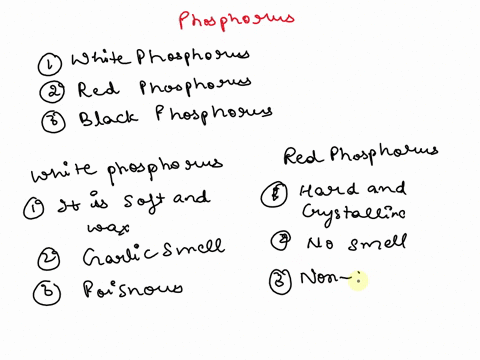 Phosphorus
① White Phosphorus
② Red Phosphorus
③ Black Phosphorus
White phosphorus
① It is Soft and
wax
② Garlic Smell
③ Poisnous
Red Phosphorus
① Hard and
Crystalline
② No smell
③ Non-